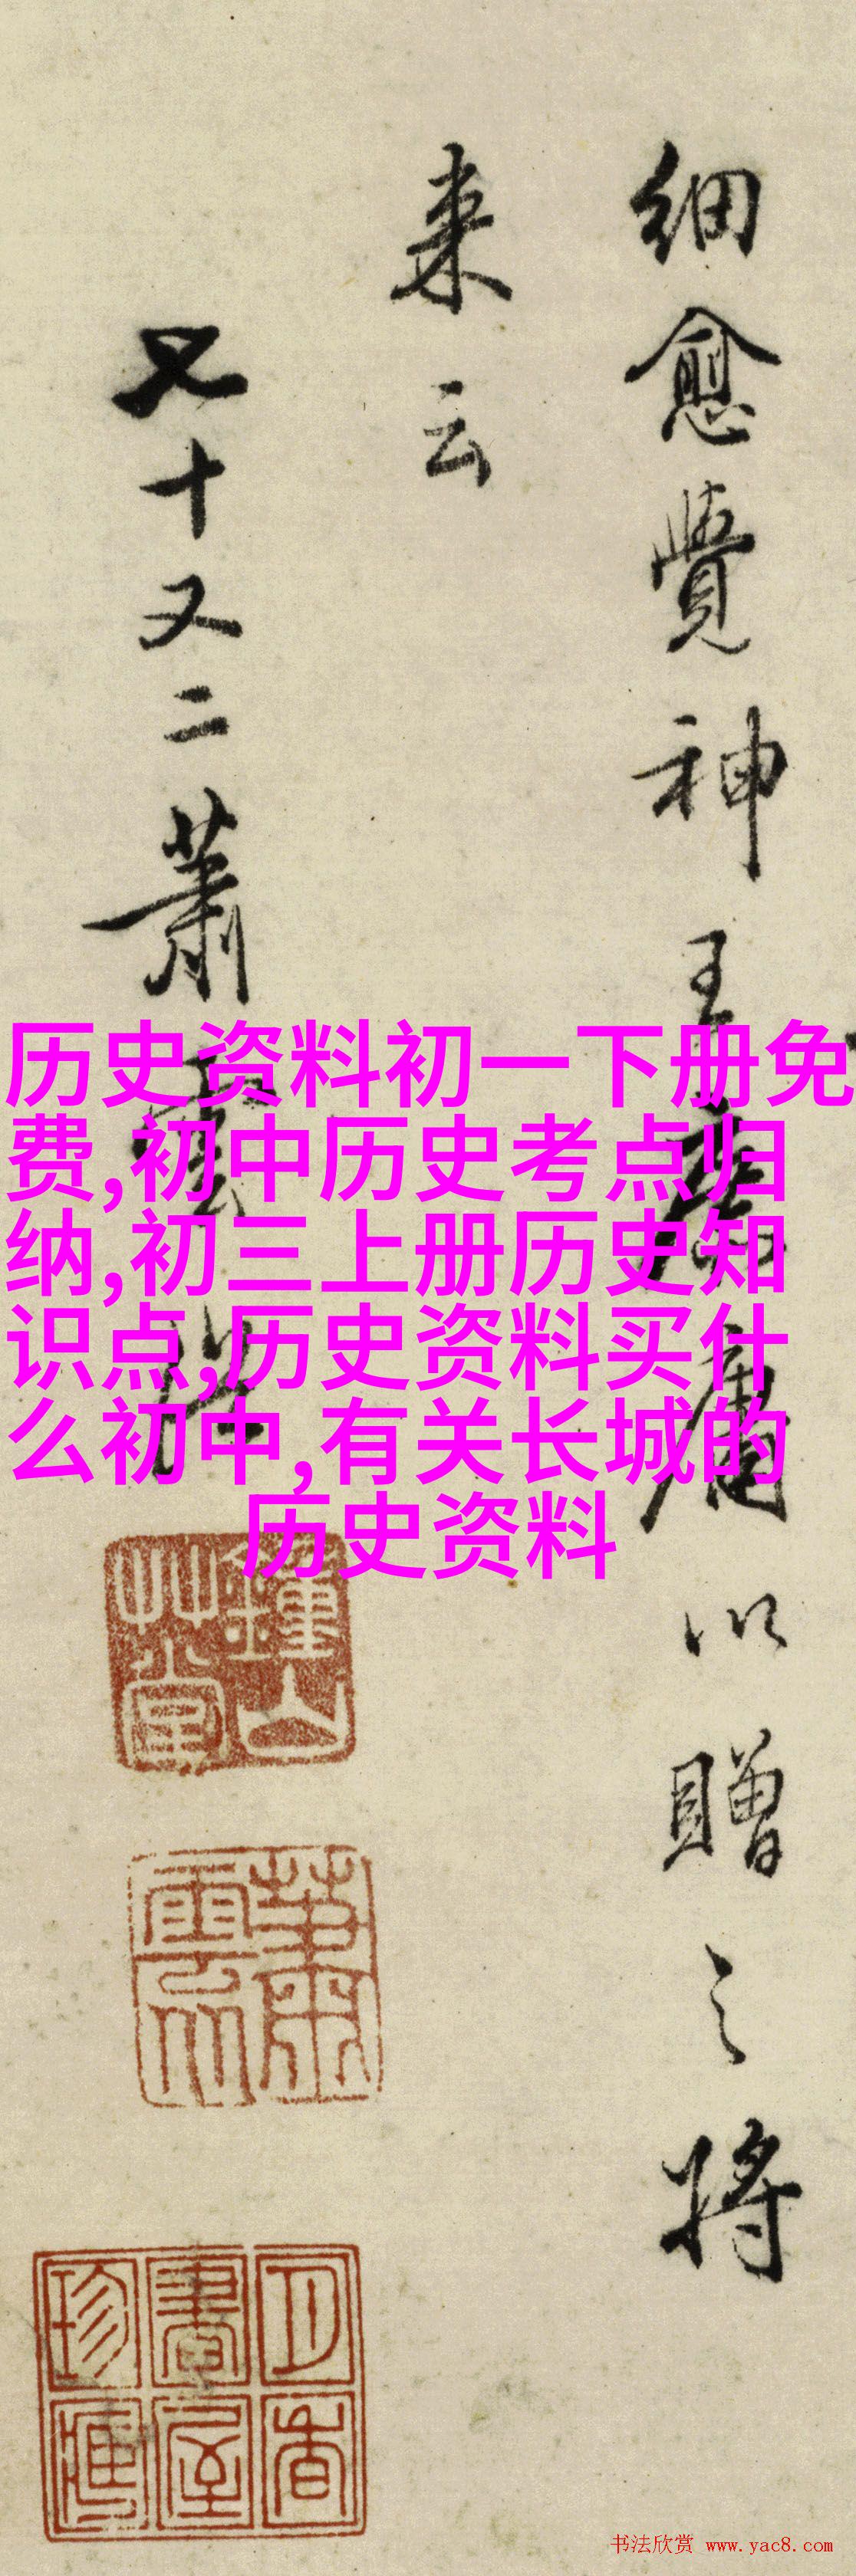 细愈覺神王
以贈之将
来云
又十又二蕭雲
历史资料初一下册免
费,初中历史考点归
纳,初三上册历史知
识点,历史资料买什
么初中,有关长城的
历史资料
鍾山
艸堂
蕭
雲從
书法欣赏 www.yac8.com